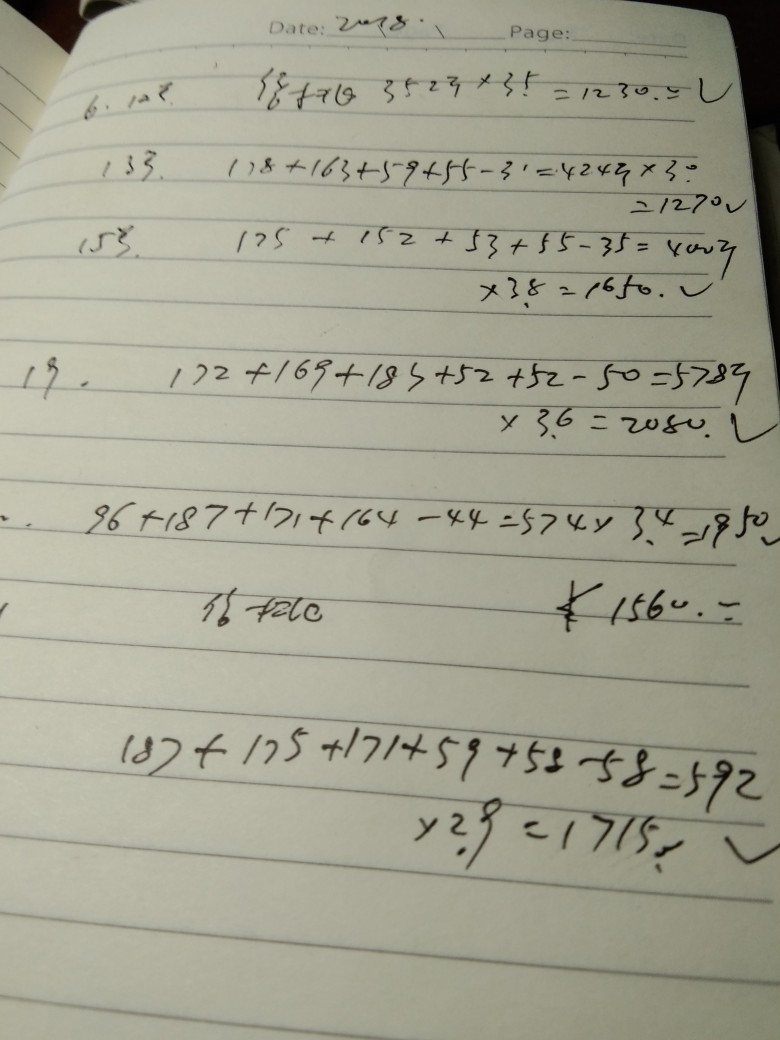 Date: 2018. Page:
6. 352斤×3.5=1230.=
133. 178+163+59+55-31=424斤×3.0
=1270
175+152+53+55-35=400斤
×3.8=1650.
19. 172+169+183+52+52-50=578斤
×3.6=2080.
96+187+171+164-44=574×3.4=1950
1560.=
187+175+171+59+58-58=592
×2.9=1715.